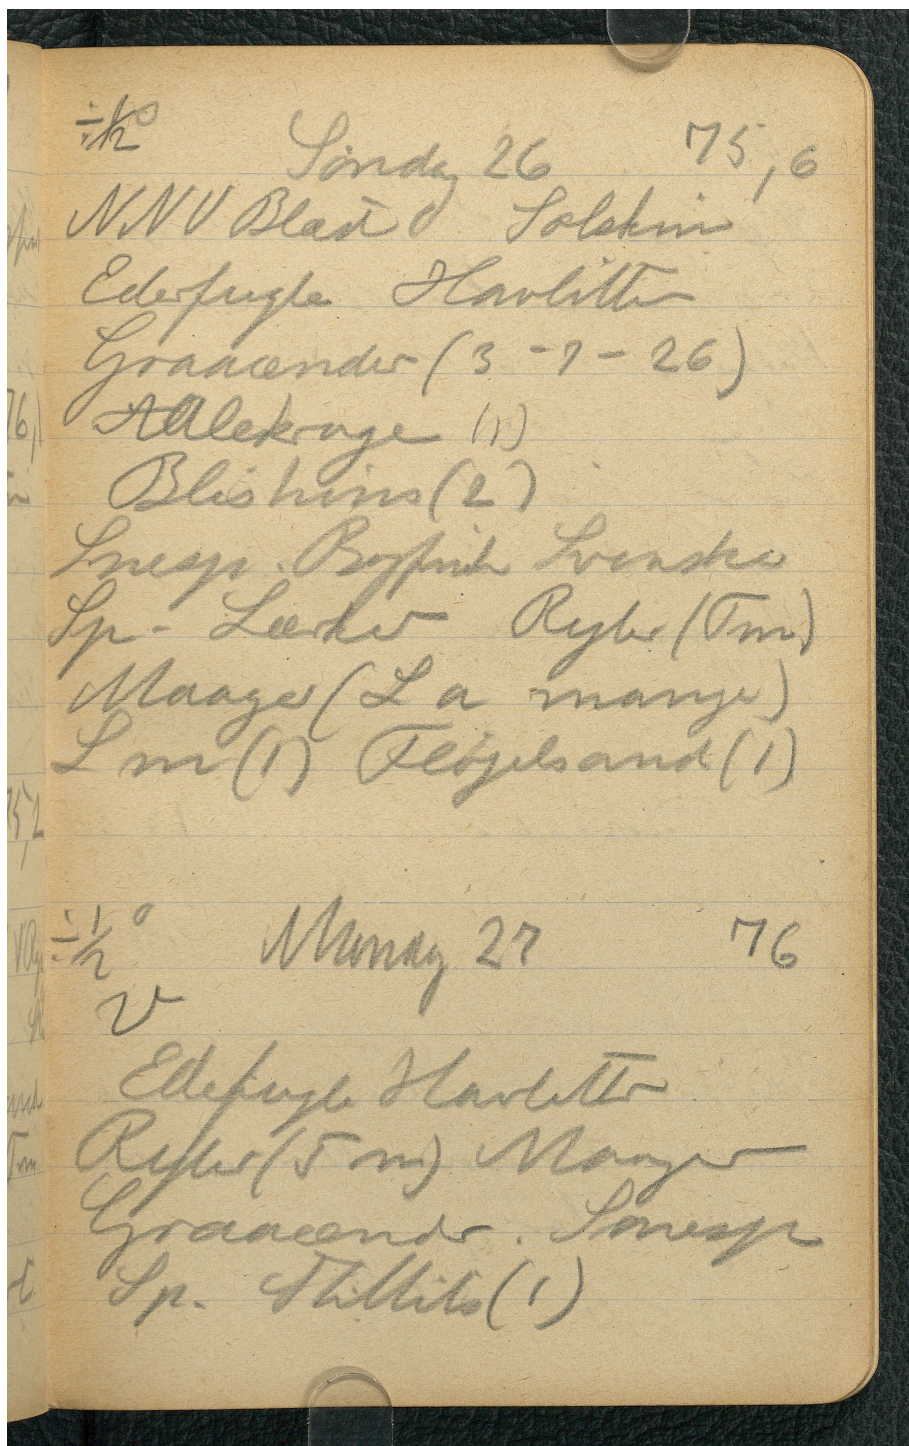 ÷½° Søndag 26 75,6
NNV Blæst Solskin
Ederfugle Havlitter
Graaænder (3 - 7 - 26)
Allekrage (1)
Blishøns (2)
Snesp. Bogfink Svenske
Sp. Lærker Ryler (T m)
Maager (L a mange)
L m (1) Fløjelsand (1)
÷½° Mandag 27 76
V
Ederfugle Havlitter
Ryler (T m) Maager
Graaænder. Snesp
Sp. Stillits (1)